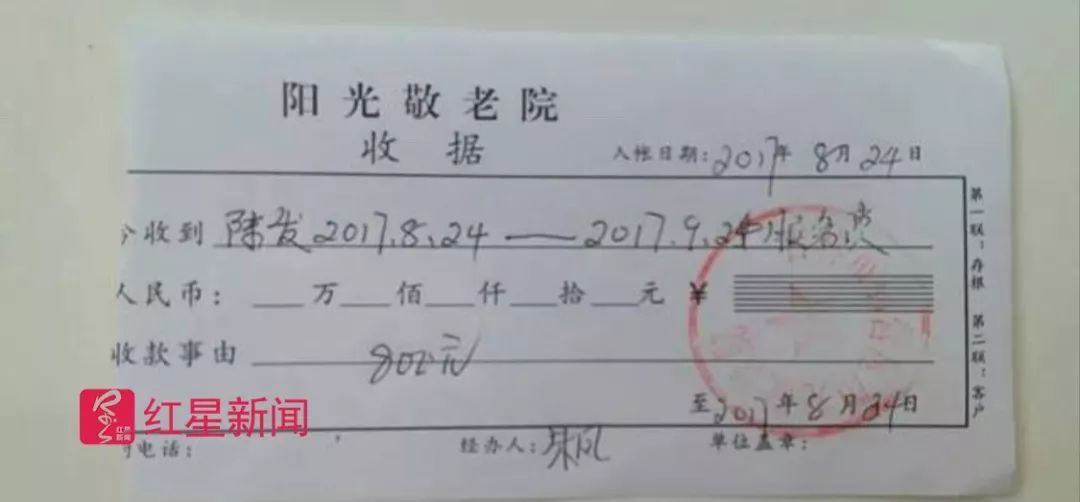 阳光敬老院
收据
入帐日期:2017年8月24日
今收到 陈发2017.8.24——2017.9.24服务费
人民币:___万___佰___仟___拾___元 ¥
收款事由 800元
至2017年8月24日
电话:
经办人:朱凤
单位盖章:
第一联:存根 第二联:客户
红星新闻
红星新闻